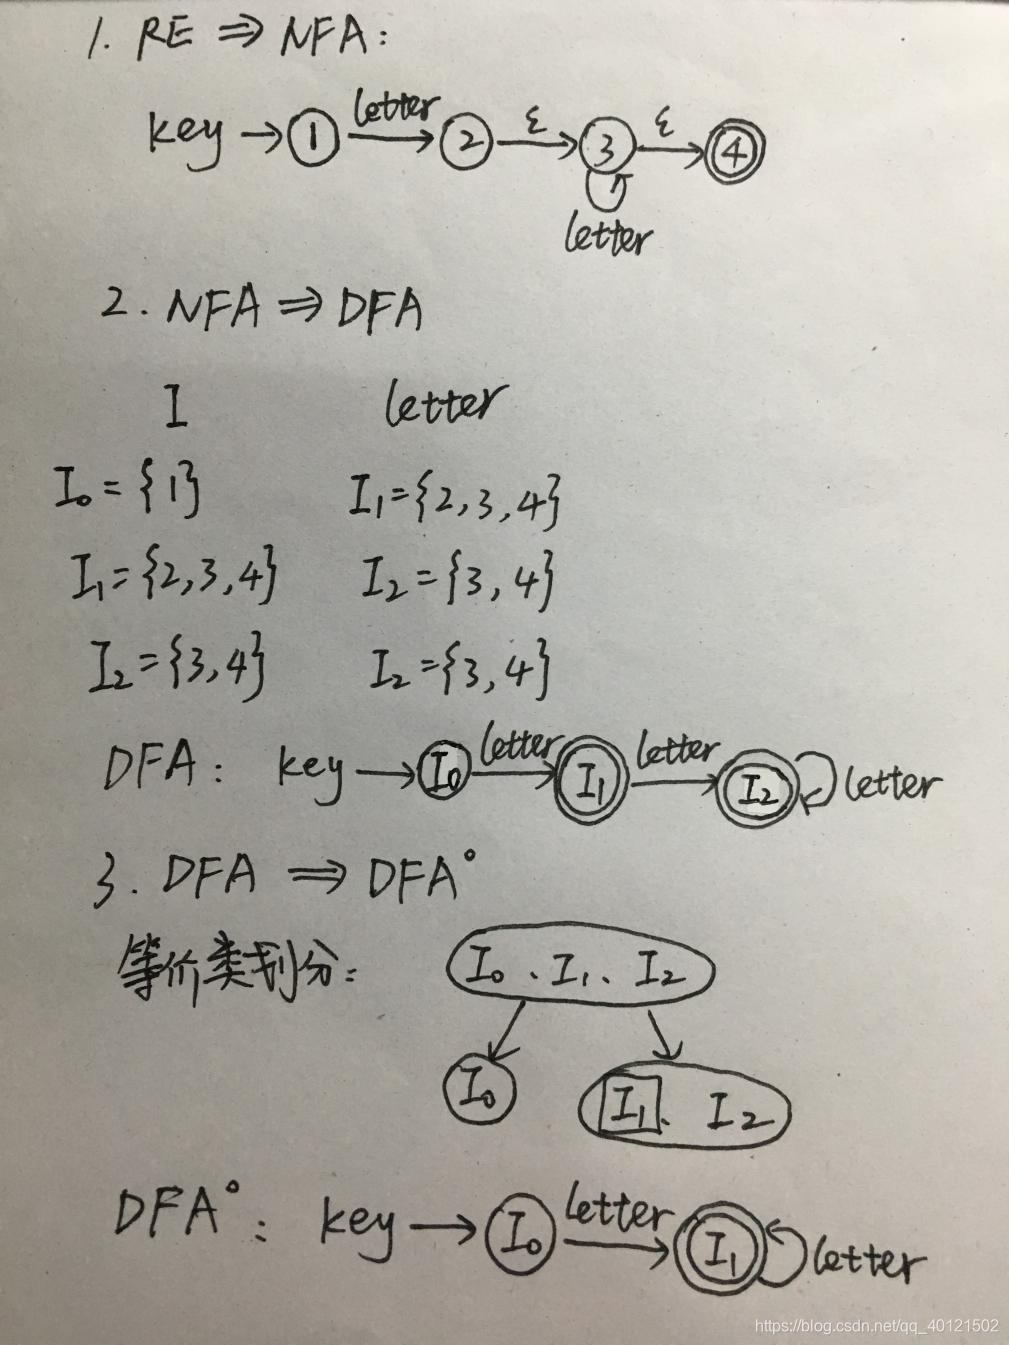 1. RE ⇒ NFA:
key → 1 letter 2 ε 3 ε 4
letter
2. NFA ⇒ DFA
I letter
I₀ = {1} I₁={2,3,4}
I₁={2,3,4} I₂={3,4}
I₂={3,4} I₂={3,4}
DFA: key → I₀ letter I₁ letter I₂ letter
3. DFA ⇒ DFA°
等价类划分: I₀、I₁、I₂
I₀ I₁、I₂
DFA°: key → I₀ letter I₁ letter
https://blog.csdn.net/qq_40121502